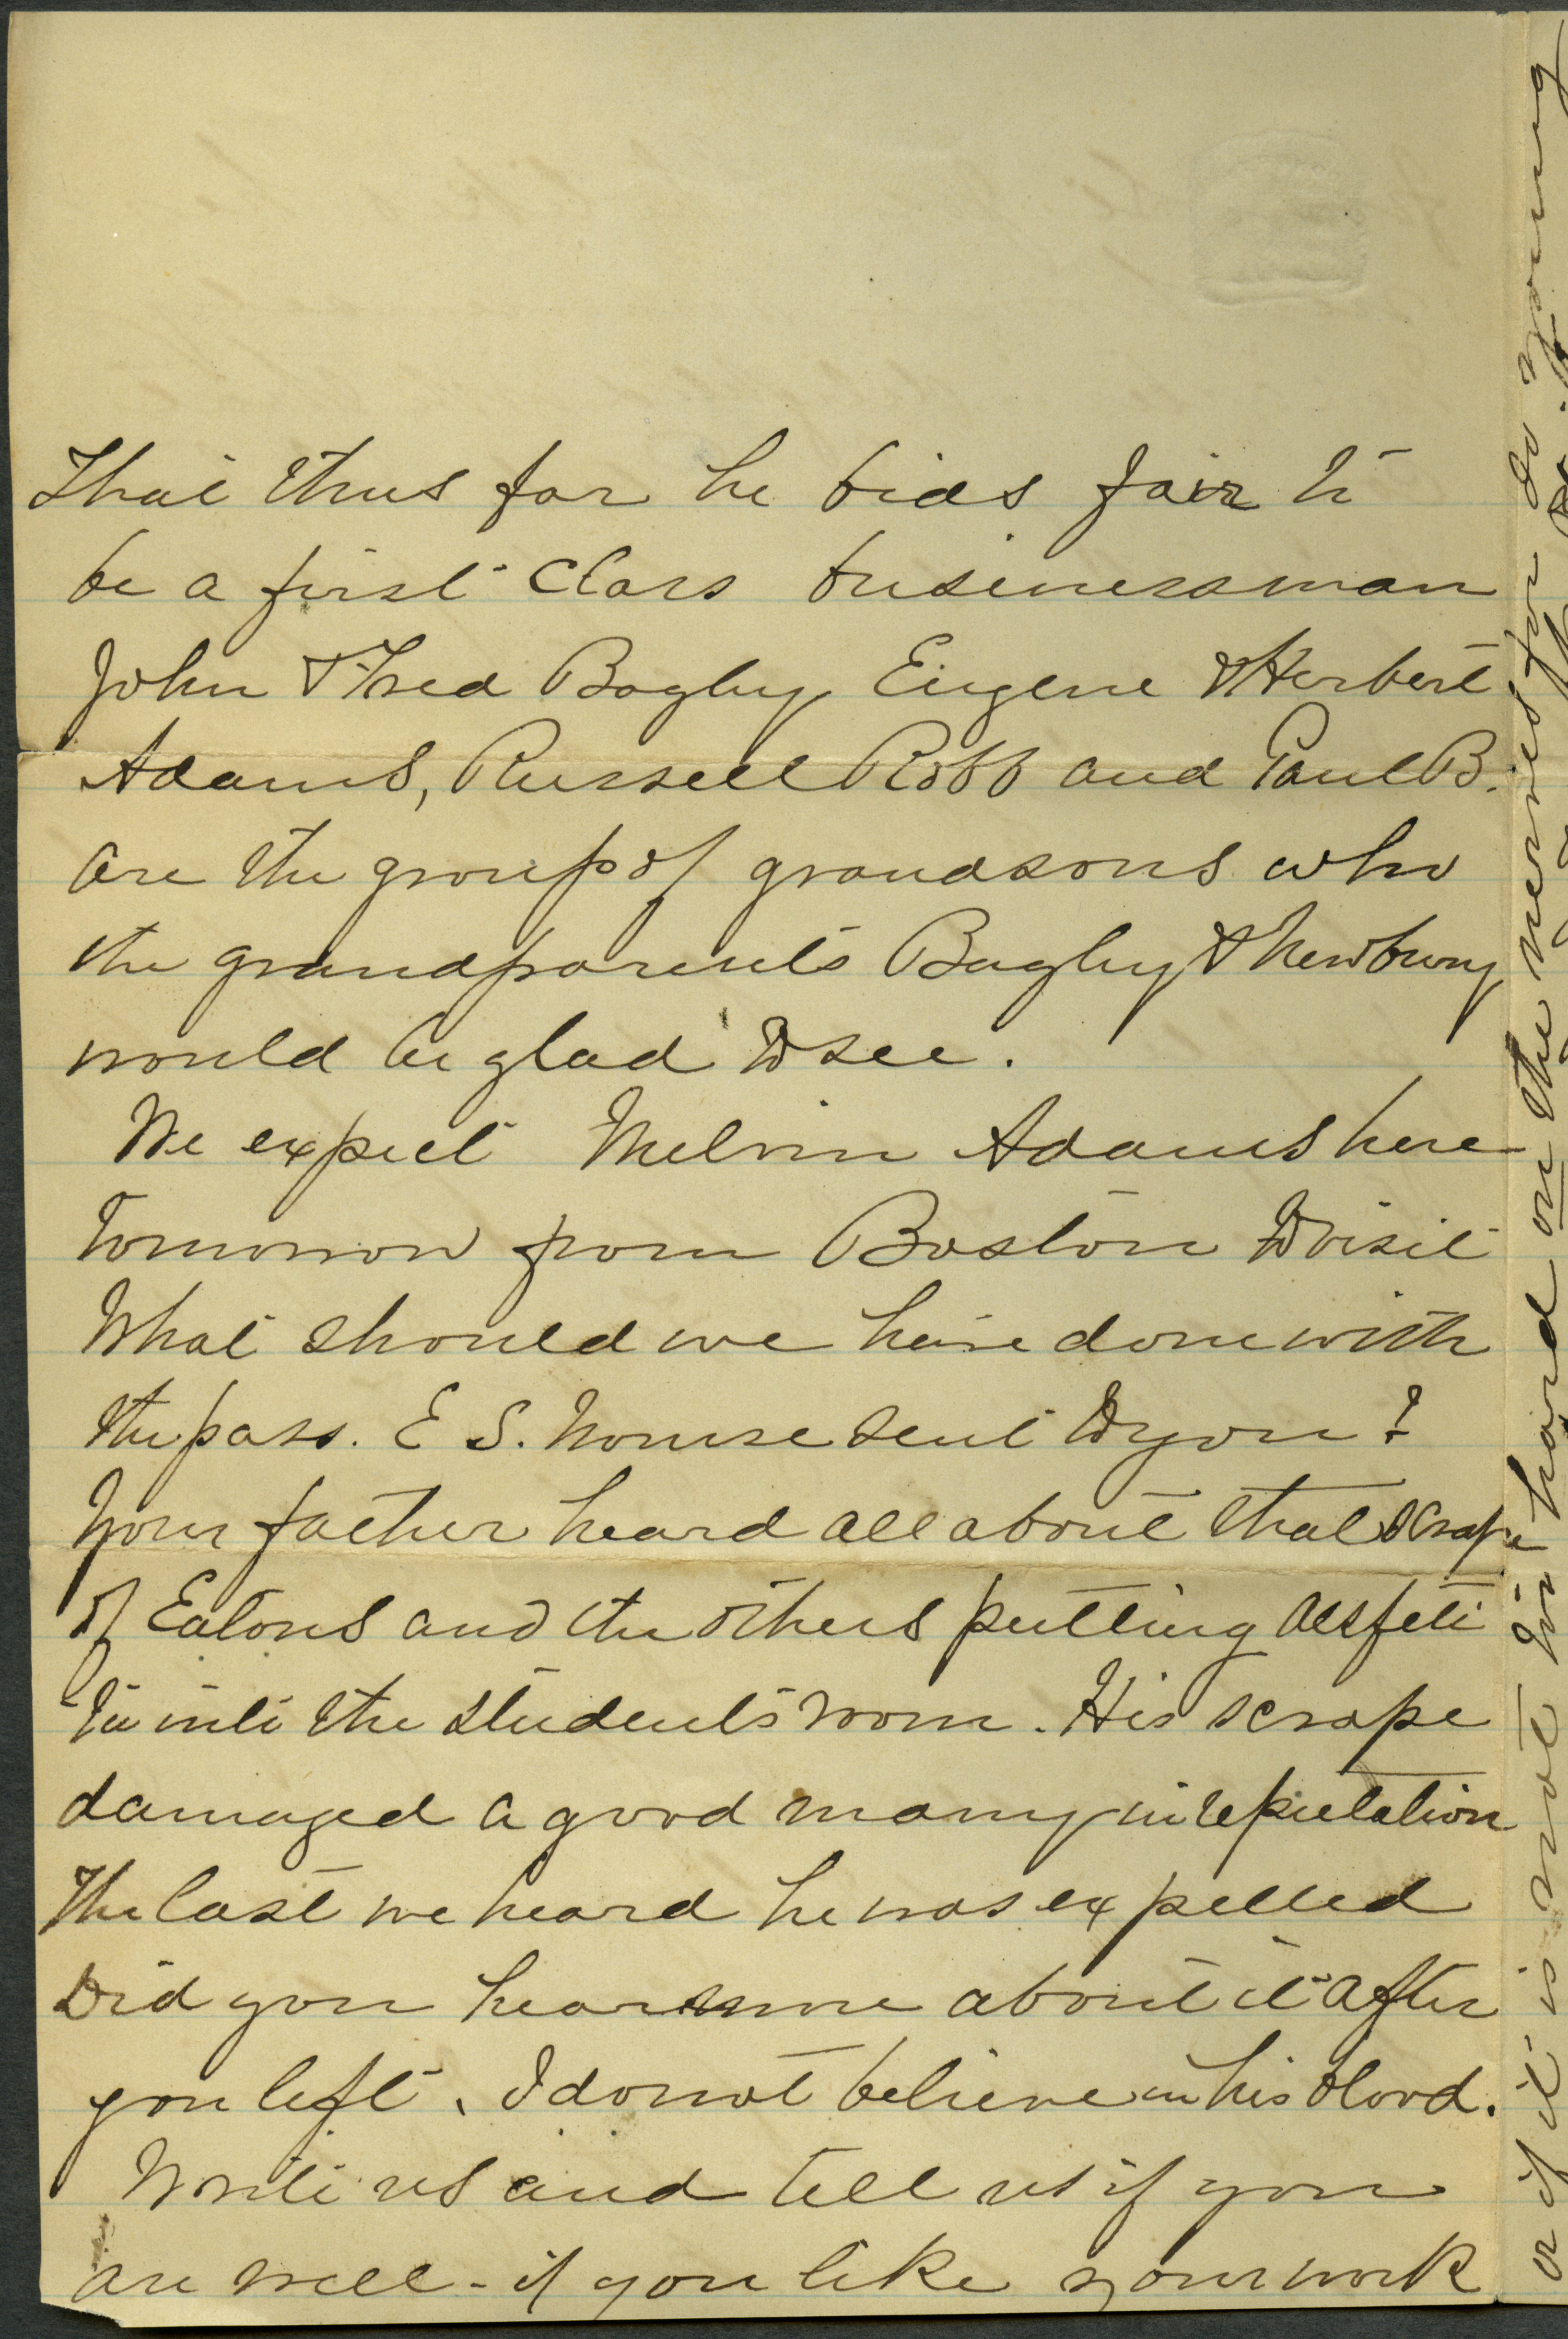 That thus far he bids fair to
be a first class businessman
John & Fred Bagley, Eugene & Herbert
Adams, Russell Robb and Paul B.
are the group of grandsons who
the grandparents Bagley & Newbury
would be glad to see.
We expect Melvin Adams here
tomorrow from Boston to visit
What should we have done with
the pass. E S. Nourse sent to you?
Your father heard all about that scrape
of Eatons and the others putting assfeti
da into the students room. His scrape
damaged a good many in reputation
The last we heard he was expelled
Did you hear more about it after
you left. I do not believe in his blood.
Write us and tell us if you
are well - if you like your work
or if it is not too hard on the nerves for so young